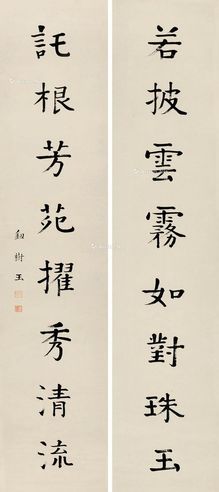 若披雲霧如對珠玉
託根芳苑擢秀清流
樹玉